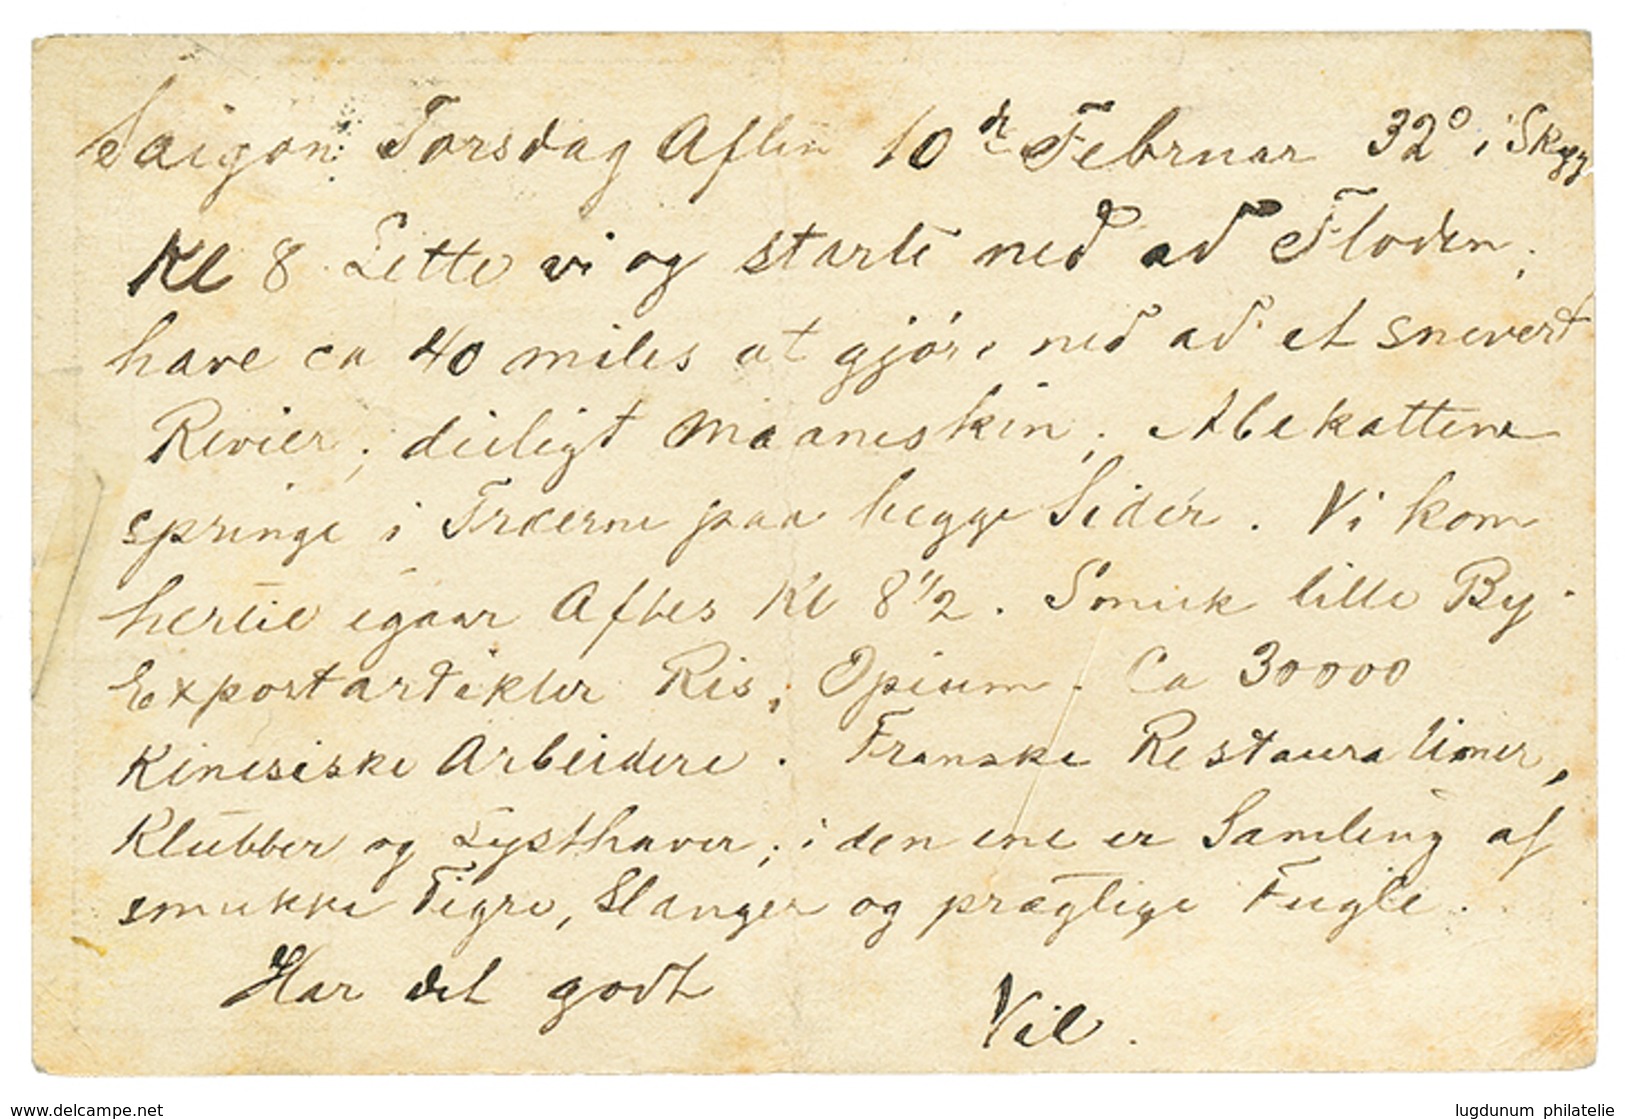 Saigon: Torsdag Aften 10de Februar 32° i Skyg
Kl 8 Lette vi og starte ned ad Floden;
have ca 40 miles at gjöre ned ad et snevert
Revier; deiligt Maaneskin; Abekattene
springe i Træerne paa begge Sider. Vi kom
hertil igaar Aftes Kl 8 1/2. Smuk lille By.
Exportartikler Ris, Opium. Ca 30000
Kinesiske Arbeidere. Franske Restaurationer,
Klubber og Lysthaver; i den ene er Samling af
smukke Tigre, Slanger og prægtige Fugle.
Har det godt
Vil.
www.delcampe.net
lugdunum philatelie